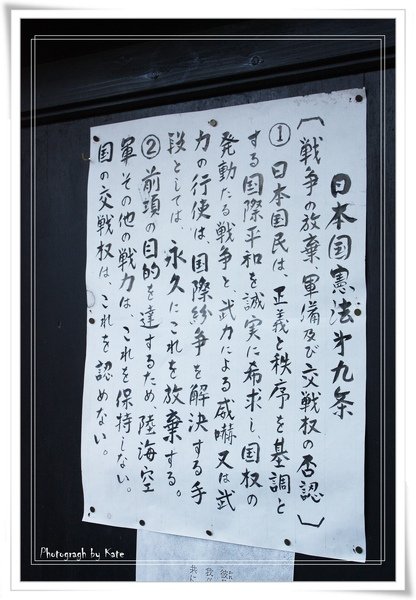 日本国憲法第九条
〔戦争の放棄、軍備及び交戦权の否認〕
① 日本国民は、正義と秩序を基調と
する国際平和を誠実に希求し、国权の
発動たる戦争と武力による威嚇又は武
力の行使は、国際紛争を解決する手
段としては 永久にこれを放棄する。
② 前項の目的を達するため、陸海空
軍 その他の戦力は、これを保持しない。
国の交戦权は、これを認めない。
Photogragh by Kate